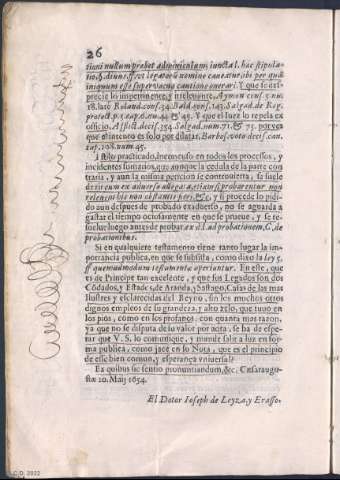 26
tioni nullum præbet adiminiculum, iuncta l. hæc stipula-
tio, §. diuus, ff. vt legatorũ nomine caueatur, ibi per quã
iniquum esse superuacua cautione onerari. Y que se des-
precie lo impertinente, è irreleuante, Aymon cons. 5. nu.
18. latè Roland. cons. 34. Bald. cons. 143. Salgad. de Reg.
protect. p. 3. cap. 9. nu. 44. & 45. Y que el Iuez lo repela ex
officio, Afflict. decis. 354. Salgad. num. 71. & 75. por ver
que el intento es solo por dilatar, Barbos. voto decis. can.
cap. 108. num. 45.
Estilo practicado, è inconcuso en todos los processos, y
incidentes sumarios, que aunque la cedula de la parte con
traria, y aun la misma pericia se controuierta, se suele
dezir cum ex aduerso allegata, etiamsi probarentur non
releuent his non obstantibus, &c. y si procede lo pidi-
do aun despues de probado ex aduerso, no se aguarda à
gastar el tiempo ociosamente en que se prueue, y se re-
suelue luego antes de probar, ex d. l. ad probationem, C. de
probationibus.
Si en qualquiere testamento tiene tanto lugar la im-
portancia publica, en que se subsista, como dixo la ley 5.
ff. quemadmodum testamenta aperiantur. En este, que
es de Principe tan excelente, y que sus Legados son dos
Códados, y Estados, de Aranda, y Sastago, Casas de las mas
Ilustres y esclarecidas del Reyno, sin los muchos otros
dignos empleos de su grandeza, y alto zelo, que tuuo en
los pios, como en los profanos, con quanta mas razon,
ya que no se disputa de su valor por aora, se ha de espe-
rar que V. S. lo comunique, y mande salir a luz en for-
ma publica, como jacè en su Nota, que es el principio
de esse bien comun, y esperança vniuersal?
Ex quibus sic sentio pronuntiandum, &c. Cæsaraugu-
stæ 10. Maij 1654.
El Dotor Ioseph de Leyza, y Erasso.
C.D. 2022